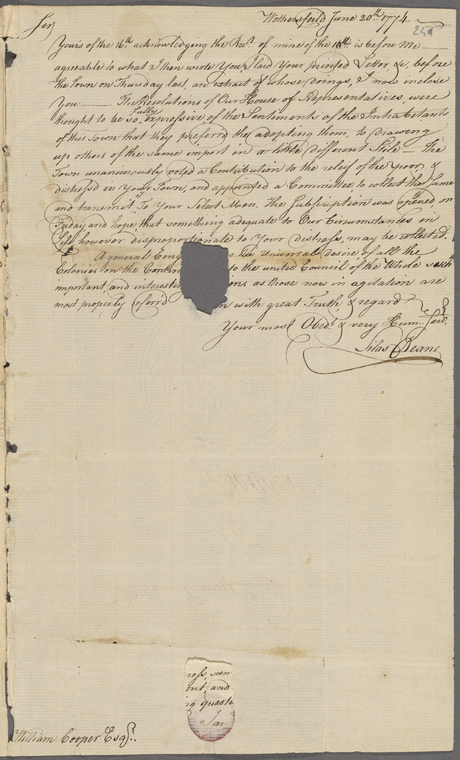 Wethersfield June 20th. 1774
Sir
Yours of the 16th acknowledging the Rect. of mine of the is before me
agreable to what I then wrote You, I laid Your printed Letter &c, before
the Town on Thursday last, an extract of whose doings, I now inclose
You — The Resolutions of Our House of Representatives, were
thought to be so fully expressive of the Sentiments of the Inhabitants
of this Town that they preferred the adopting them, to drawing
up others of the same import in a little different Stile — The
Town unanimously voted a Contribution to the relief of the poor, &
distressed in Your Town, and appointed a Committee to collect the same
and transmit to Your Select Men. The subscription was opened on
Friday and hope that something adequate to Our Circumstances in
Life however disproportionate to Your distress, may be collected.
A general Cong the universal desire of all the
Colonies on the Contin to the united Council of the Whole such
important, and interest ons as those now in agitation are
most properly referrd with great Truth & regard
Your most Obedt. & very Hum. Servt.
Silas Deane
ress, seem
ent, and
ng questi
William Cooper Esqr.